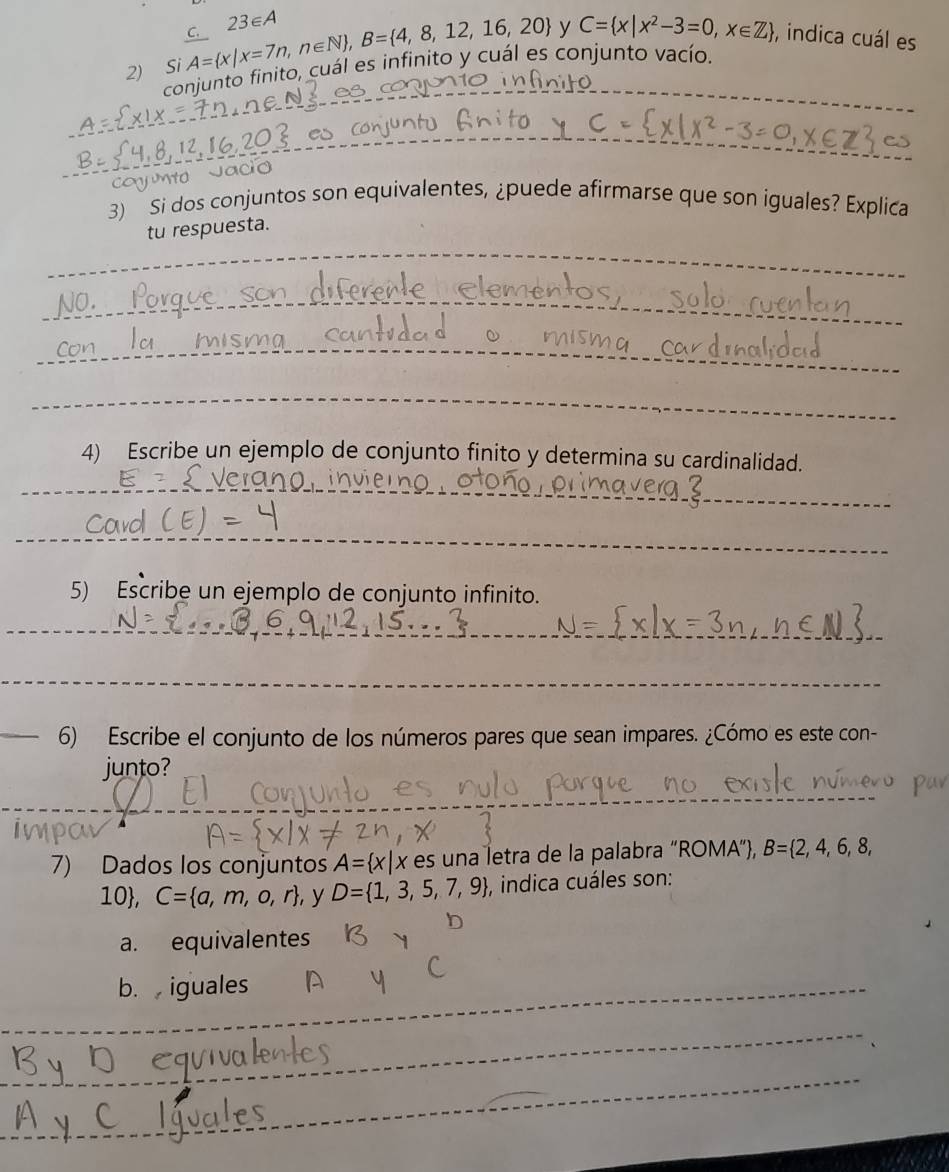 c. 23∈A
2) Si A={x|x=7n, n∈N}, B={4, 8, 12, 16, 20} y C={x|x²-3=0, x∈Z}, indica cuál es
conjunto finito, cuál es infinito y cuál es conjunto vacío.
A={x|x=7n,n∈N} es conjunto infinito
B={4,8,12,16,20} es conjunto finito y C={x|x²-3=0,x∈Z} es
conjunto vacio
3) Si dos conjuntos son equivalentes, ¿puede afirmarse que son iguales? Explica
tu respuesta.
NO. Porque son diferente elementos, solo cuentan
con la misma cantidad o misma cardinalidad
4) Escribe un ejemplo de conjunto finito y determina su cardinalidad.
E={verano, invierno, otoño, primavera}
Card (E) = 4
5) Escribe un ejemplo de conjunto infinito.
N={...3,6,9,12,15...} N={x|x=3n, n∈N}
6) Escribe el conjunto de los números pares que sean impares. ¿Cómo es este con-
junto?
∅ El conjunto es nulo porque no existe número par
impar A={x|x≠2n, x }
7) Dados los conjuntos A={x|x es una letra de la palabra “ROMA”}, B={2, 4, 6, 8,
10}, C={a, m, o, r}, y D={1, 3, 5, 7, 9}, indica cuáles son:
a. equivalentes B y D
b. iguales A y C
B y D equivalentes
A y C Iguales